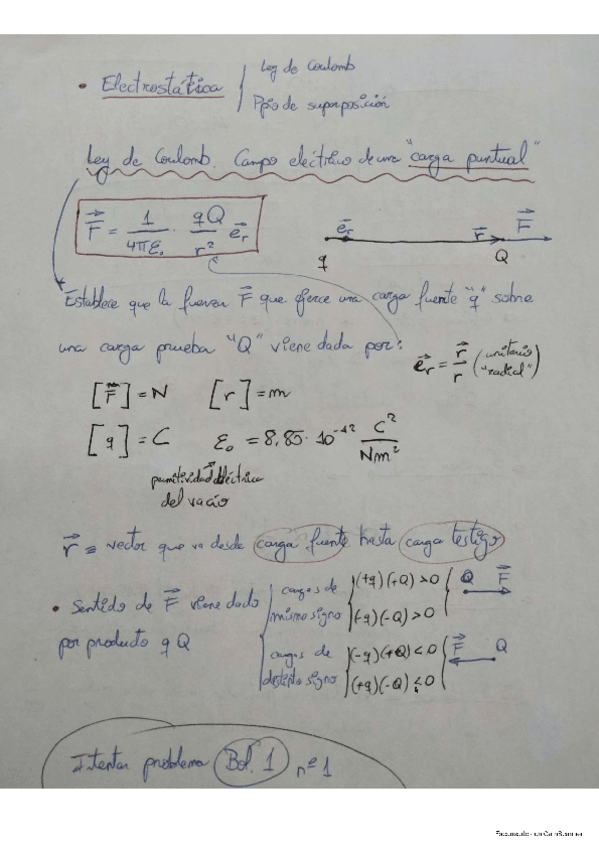 • Electrostática { Ley de Coulomb
Ppio de superposición
Ley de Coulomb. Campo eléctrico de una "carga puntual"
F⃗ = 1/4πε₀ · qQ/r² e⃗r
e⃗r r⃗ F⃗
q Q
Establece que la fuerza F⃗ que ejerce una carga fuente "q" sobre
una carga prueba "Q" viene dada por:
e⃗r = r⃗/r (unitario "radial")
[F⃗] = N [r] = m
[q] = C ε₀ = 8,85·10⁻¹² C²/Nm²
permitividad dieléctrica
del vacío
r⃗ ≡ vector que va desde carga fuente hasta carga testigo
• Sentido de F⃗ viene dado
por producto q Q
cargas de mismo signo { (+q)(+Q) > 0
(-q)(-Q) > 0
Q F⃗
cargas de distinto signo { (-q)(+Q) < 0
(+q)(-Q) < 0
F⃗ Q
Intentar problema Bol. 1 nº 1